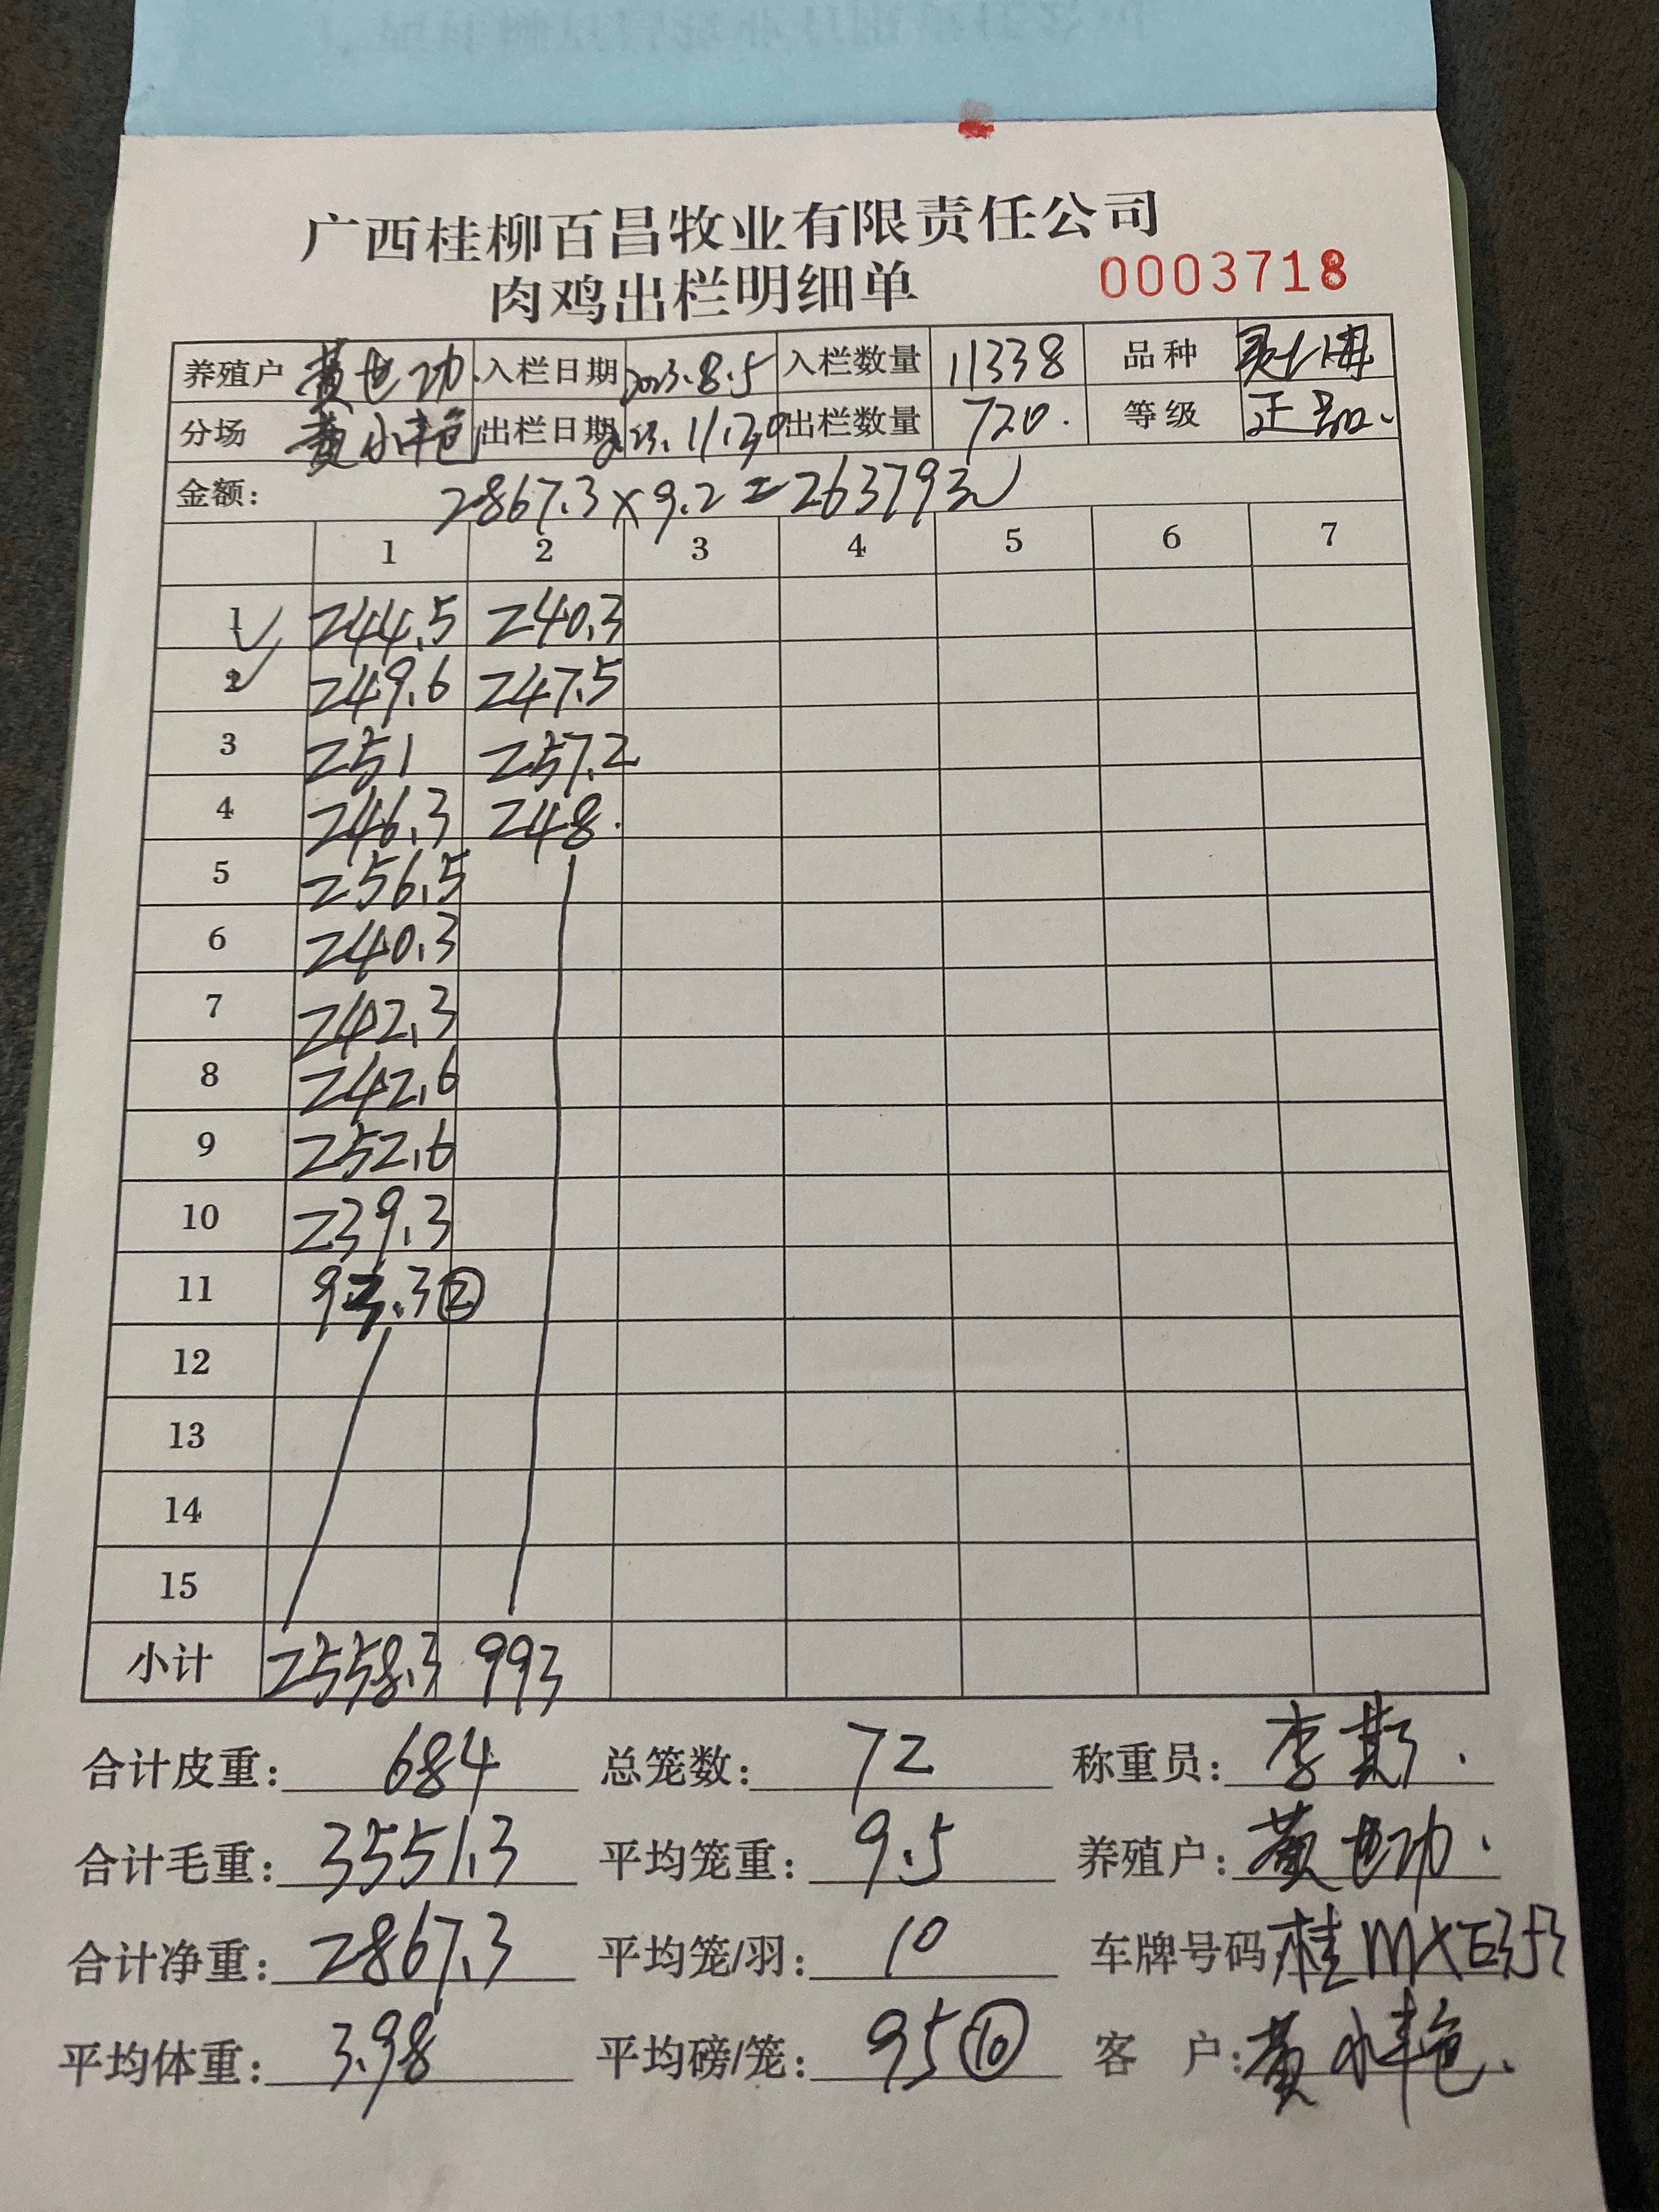 广西桂柳百昌牧业有限责任公司
肉鸡出栏明细单 0003718
养殖户 黄世功 入栏日期 2023.8.5 入栏数量 11338 品种
分场 黄小艳 出栏日期 23.11.20 出栏数量 720. 等级 正品.
金额: 2867.3×9.2=26379元
1 2 3 4 5 6 7
1 244.5 240.3
2 249.6 247.5
3 251 257.2
4 246.3 248.
5 256.5
6 240.3
7 242.3
8 242.6
9 252.6
10 239.3
11 93.3②
12
13
14
15
小计 2558.3 993
合计皮重: 684 总笼数: 72 称重员: 李
合计毛重: 3551.3 平均笼重: 9.5 养殖户: 黄世功.
合计净重: 2867.3 平均笼/羽: 10 车牌号码 桂MX
平均体重: 3.98 平均磅/笼: 95⑩ 客户: 黄小艳.